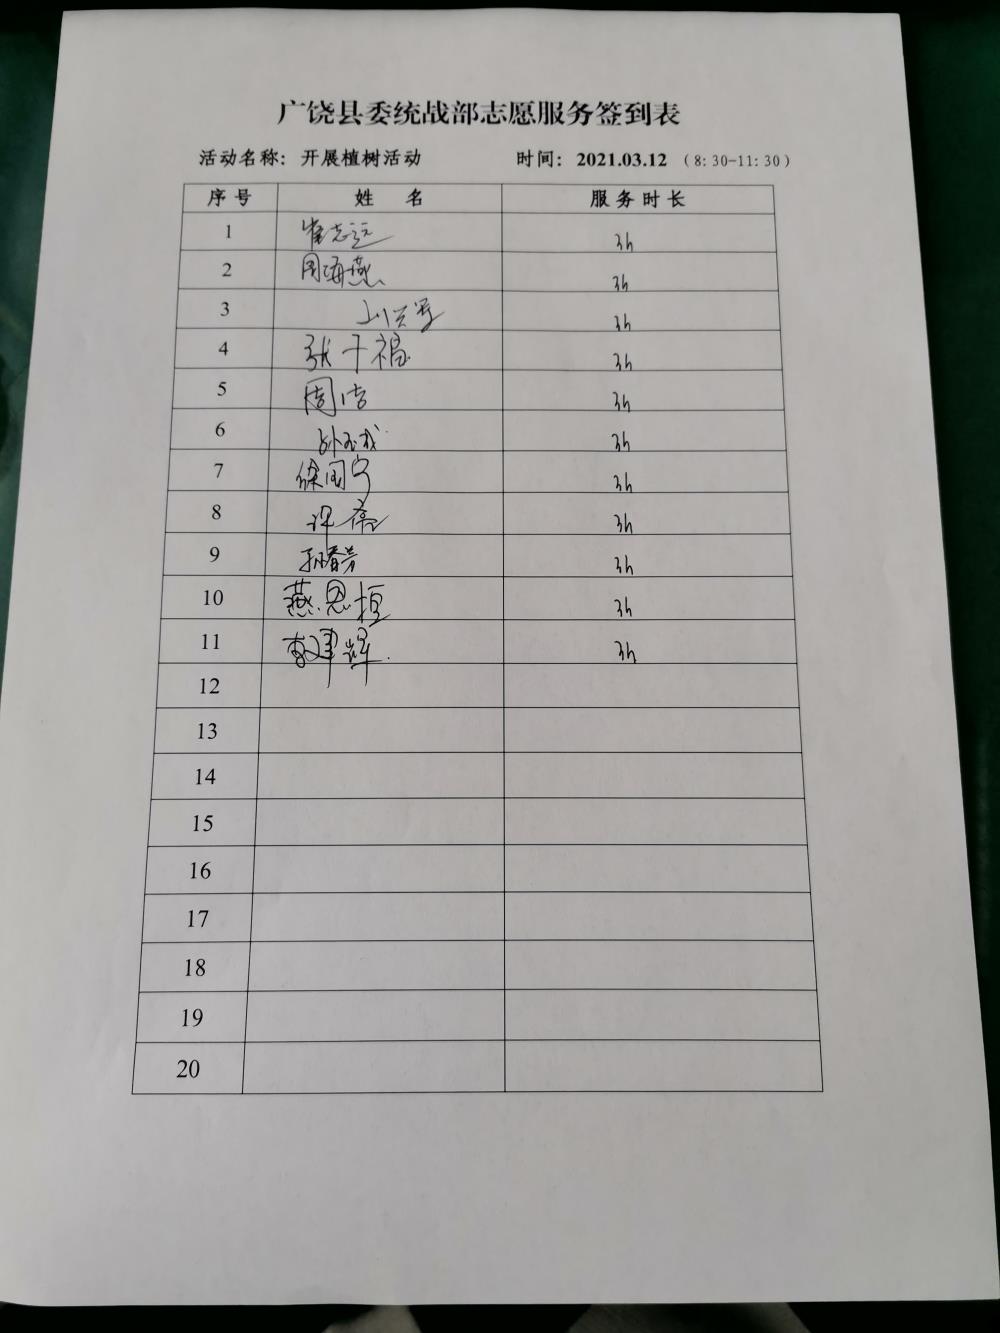 广饶县委统战部志愿服务签到表
活动名称：开展植树活动 时间：2021.03.12（8:30-11:30）
序号 姓名 服务时长
1 崔志远 3h
2 周海燕 3h
3 3h
4 张千福 3h
5 周洁 3h
6 3h
7 徐国宁 3h
8 许蓓 3h
9 孙春芳 3h
10 燕恩垣 3h
11 李建辉 3h
12
13
14
15
16
17
18
19
20